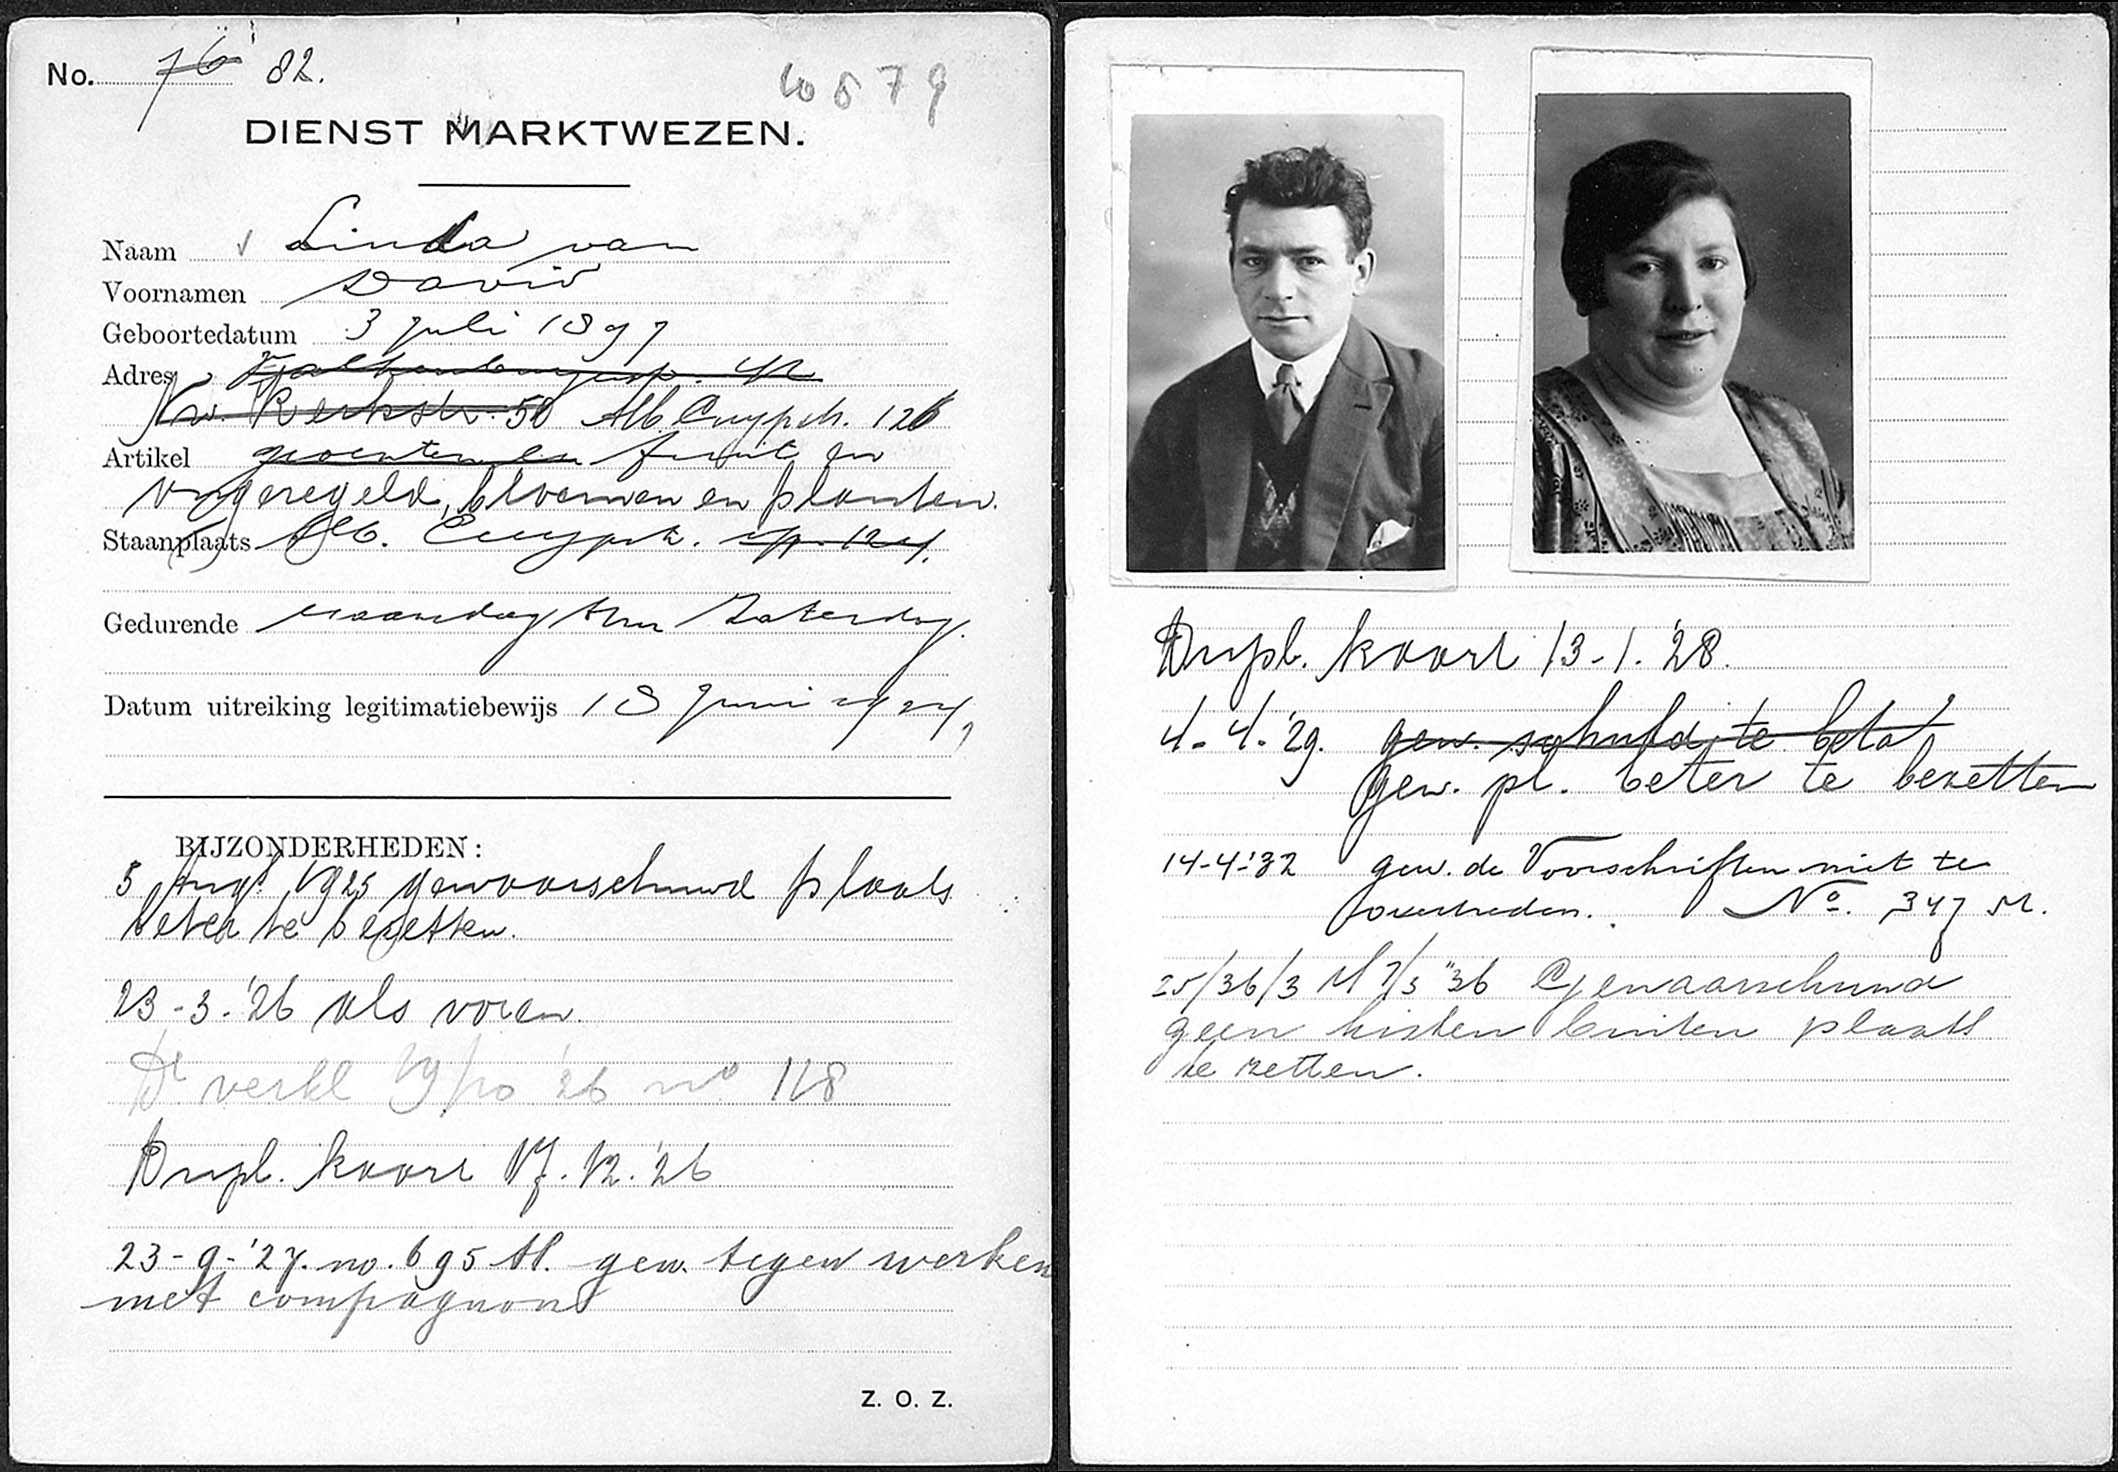 No. 76 82.
10579
DIENST MARKTWEZEN.
Naam Linda van
Voornamen David
Geboortedatum 3 juli 1897
Adres Valkenburgerstr. 42
Nw. Kerkstr. 50 Alb. Cuypstr. 126
Artikel groenten en fruit en
ongeregeld, bloemen en planten.
Staanplaats Alb. Cuypstr. op. 124.
Gedurende maandag t/m Zaterdag.
Datum uitreiking legitimatiebewijs 18 Juni 1924,
BIJZONDERHEDEN:
5 Aug. 1925 gewaarschuwd plaats
beter te bezetten.
23-3-'26 als voren.
Dr verkl 19/10 '26 no 118
Dupl. kaart 17.12.'26
23-9-'27. no. 695 M. gew. tegen werken
met compagnon
Z. O. Z.
Dupl. kaart 13-1.'28.
4-4-'29. gew. schuld te bet.
gew. pl. beter te bezetten
14-4-'32 gew. de Voorschriften niet te
overtreden. No. 347 M.
25/36/3 M 7/3 '36 Gewaarschuwd
geen kisten buiten plaats
te zetten.